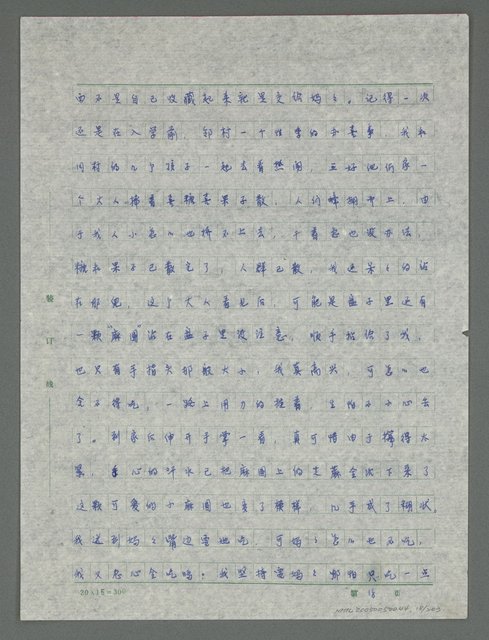 而不是自己收藏起来就是交给妈々。记得一次
还是在入学前，邻村一个姓李的办喜事，我和
同村的几个孩子一起去看热闹，正好他们家一
个大人捧着喜糖喜果子散，人们蜂拥而上，由
于我人小怎么也挤不上去，干着急也没办法，
糖和果子已散完了，人群已散，我还呆々的站
在那儿，这个大人看见后，可能是盘子里还有
一颗"麻团"沾在盘子里没注意，顺手拾给了我，
也只有手指头那般大小，我真高兴，可怎么也
舍不得吃，一路上用力的握着，生怕不小心丢
了。到家后伸开手掌一看，真可惜由于攥得太
紧，手心的汗水已把麻团上的芝麻全沾下来了
这颗可爱的小麻团也变了模样，几乎成了糊状。
我送到妈々嘴边要她吃，可妈々怎么也不吃，
我又忍心全吃吗。我坚持需妈々哪怕只吃一点
装
订
线
20×15=300
第 18 页